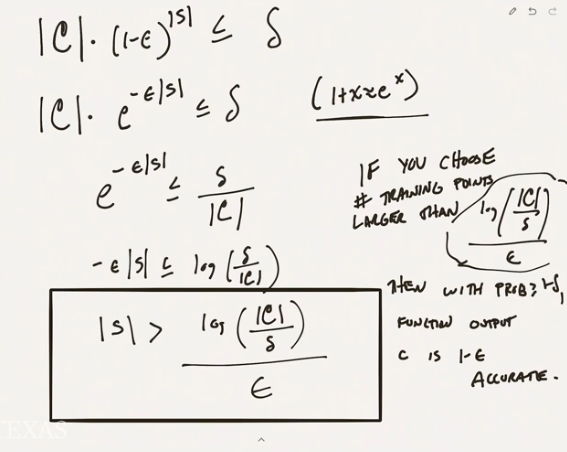 |C| · (1-ϵ)^|S| ≤ δ
|C| · e^-ϵ|S| ≤ δ
(1+x≈e^x)
e^-ϵ|S| ≤ δ/|C|
-ϵ|S| ≤ log(δ/|C|)
|S| > log(|C|/δ)/ϵ
IF YOU CHOOSE
# TRAINING POINTS
LARGER THAN log(|C|/δ)/ϵ
THEN WITH PROB ≥ 1-δ,
FUNCTION OUTPUT
C IS 1-ϵ
ACCURATE.
TEXAS